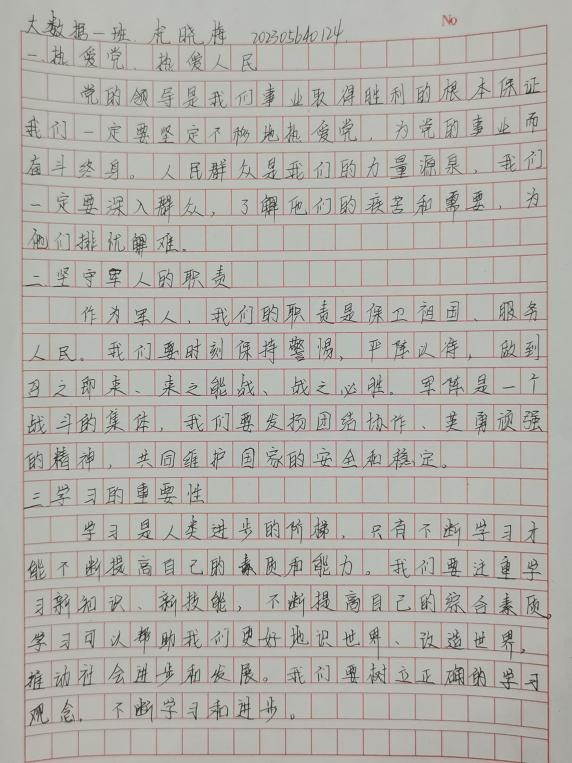 No
大数据一班 庞晓梅 202305640124
一.热爱党、热爱人民
党的领导是我们事业取得胜利的根本保证
我们一定要坚定不移地热爱党，为党的事业而
奋斗终身。人民群众是我们的力量源泉，我们
一定要深入群众，了解他们的疾苦和需要，为
他们排忧解难。
二.坚守军人的职责
作为军人，我们的职责是保卫祖国、服务
人民。我们要时刻保持警惕，严阵以待，做到
召之即来、来之能战、战之必胜。军阵是一个
战斗的集体，我们要发扬团结协作、英勇顽强
的精神，共同维护国家的安全和稳定。
三.学习的重要性
学习是人类进步的阶梯，只有不断学习才
能不断提高自己的素质和能力。我们要注重学
习新知识、新技能，不断提高自己的综合素质。
学习可以帮助我们更好地识世界、改造世界，
推动社会进步和发展。我们要树立正确的学习
观念，不断学习和进步。